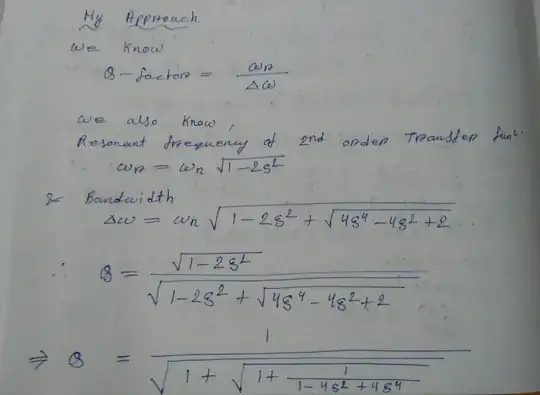 My Approach
We Know
Q-factor = ωr / Δω
We also Know,
Resonant frequency of 2nd order Transfer func.
ωr = ωn √(1-2ξ²)
& Bandwidth
Δω = ωn √(1-2ξ² + √(4ξ⁴-4ξ²+2))
∴ Q = √(1-2ξ²) / √(1-2ξ² + √(4ξ⁴-4ξ²+2))
⇒ Q = 1 / √(1 + √(1 + 1/(1-4ξ²+4ξ⁴)))